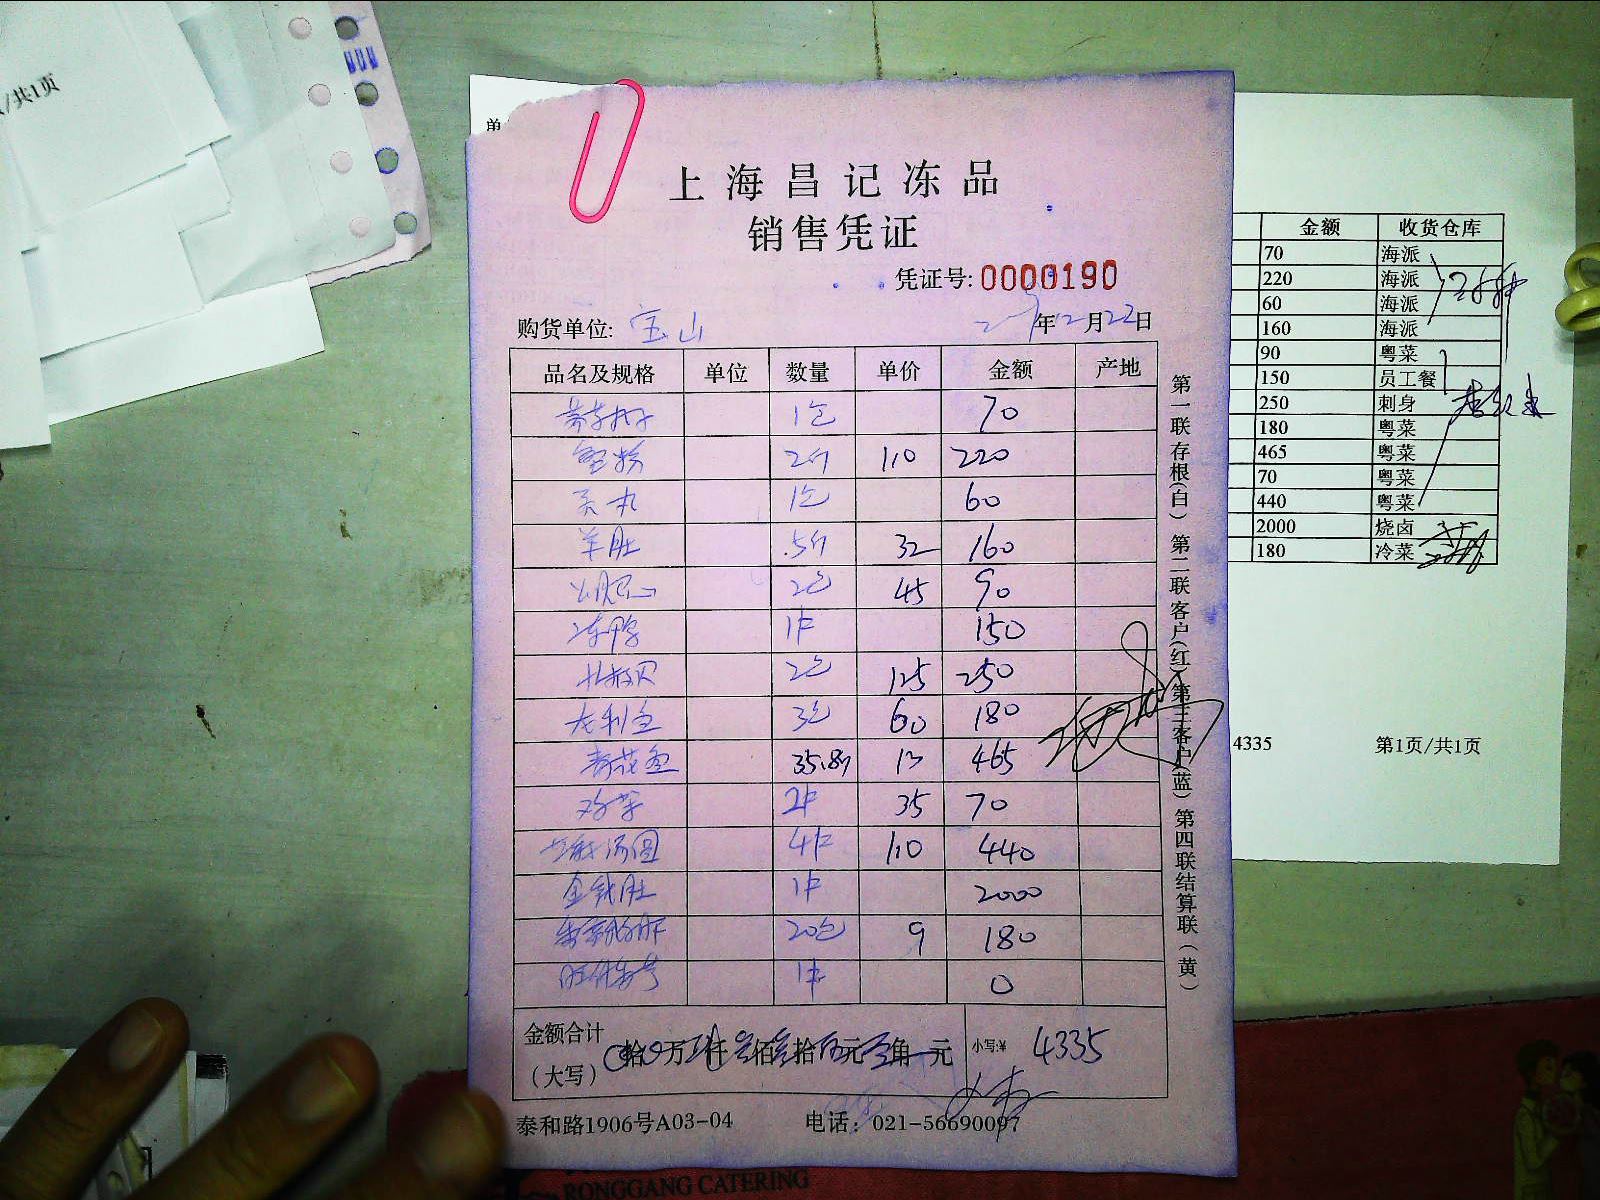 /共1页
单
上海昌记冻品
销售凭证
凭证号: 0000190
购货单位: 宝山 年12月22日
品名及规格 单位 数量 单价 金额 产地
1包 70
2斤 110 220
1包 60
羊肚 5斤 32 160
2包 45 90
冻鸭 1件 150
2包 125 250
龙利鱼 3包 60 180
35.8斤 13 465
2件 35 70
汤圆 4件 110 440
金钱肚 1件 2000
20包 9 180
1件 0
金额合计
(大写) 拾 万 仟 佰 拾 元 角 元 小写:¥ 4335
泰和路1906号A03-04 电话: 021-56690097
第一联存根(白) 第二联客户(红) 第三客户(蓝) 第四联结算联(黄)
金额 收货仓库
70 海派
220 海派
60 海派
160 海派
90 粤菜
150 员工餐
250 刺身
180 粤菜
465 粤菜
70 粤菜
440 粤菜
2000 烧卤
180 冷菜
4335 第1页/共1页
RONGGANG CATERING